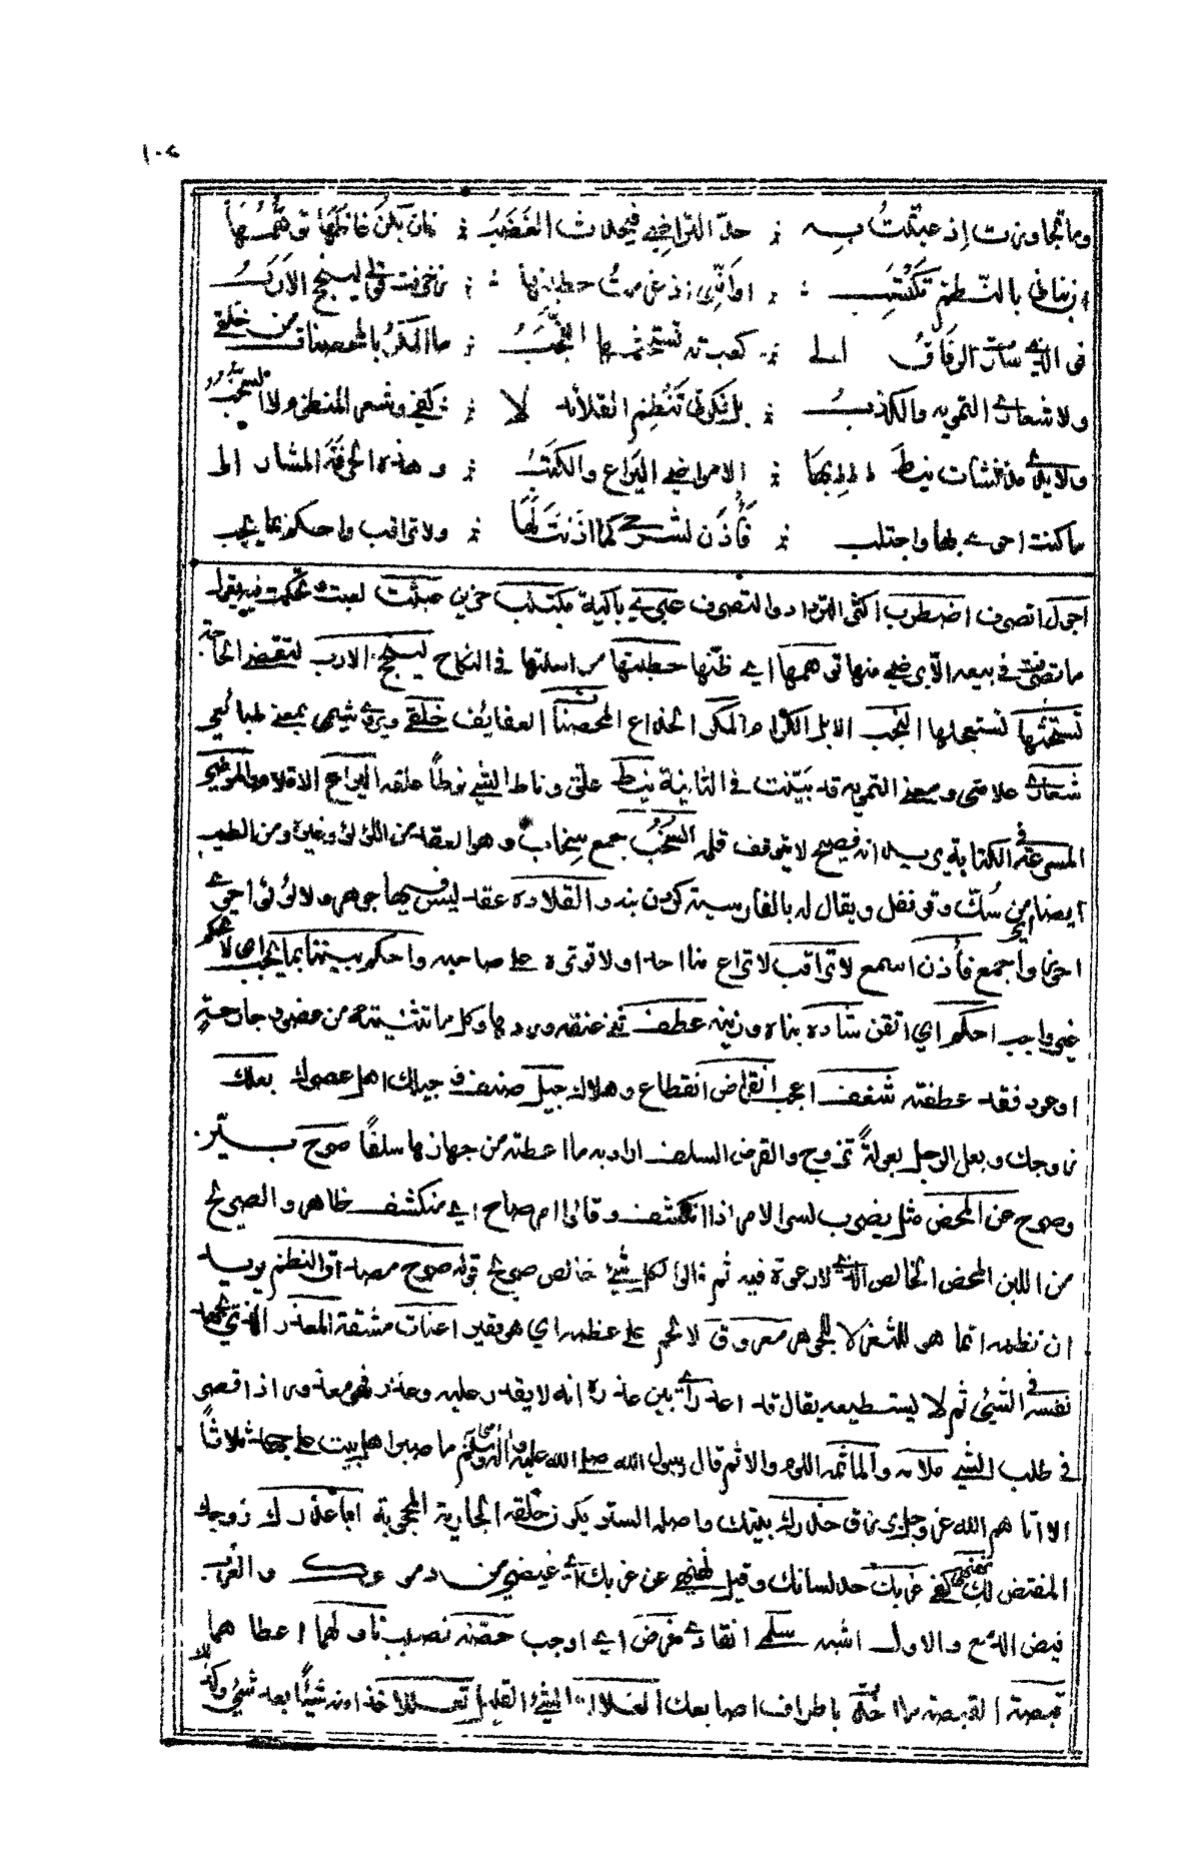 ١٠٤
وما تجاوزت إذ عبثت به ؛ حدّ التراضي فيحدث الغضب ؛ فان يكن غاظها توهمها
ان بناني بالنظم تكتسب ؛ او انني اذ عزمت خطبتها ؛ زخرفت قولي لينجح الارب
فو الذي سارت الرفاق الى ؛ كعبته تستحثها النجب ؛ ما المكر بالمحصنات من خلقي
ولا شعاري التمويه والكذب ؛ بل فكرتي تنظم القلائد لا ؛ كفي وشعري المنظوم لا السخب
ولا يدي مذ نشأت نيط بها ؛ الا مواضي اليراع والكتب ؛ وهذه الحرفة المشار الى
ما كنت احوي بها واجتلب ؛ فأذن لشرحي كما اذنت لها ؛ ولا تراقب واحكم بما يجب
اجول اتصرف اضطرب اكثر التردد والتصرف عبرى باكية مكتئب حزين عبثت لعبت تحكمت فيه يقول
ما تصرفت في بيعه الا برضى منها توهمها اي ظنها خطبتها مراسلتها في النكاح لينجح الارب لتقضى الحاجة
تستحثها تستعجلها النجب الابل الكرام المكر الخداع المحصنات العفايف خلقي ويروى شيمي بمعنى طبائعي
شعاري علامتي ومعنى التمويه قد بينت في الثانية نيط علق وناط الشيء نوطاً علقه اليراع الاقلام المواضي
المسرعة في الكتابة يريد انه فصيح لا يتوقف قلمه السخب جمع سخاب وهو العقد من اللؤلؤ وغيره ومن الطيب
ايضا من سك وقرنفل ويقال له بالفارسية كردن بند والقلادة عقد ليس فيها جوهر ولا لؤلؤ احوي
احوز واجمع فأذن اسمع لا تراقب لا تراع منا احدا ولا توثره على صاحبه واحكم بيننا بما يجب اي لا تحكم
غير واجب احكم اي اتقن شاده بناه وزينه عطف ثنى عنقه وردها وكل ما تثنيته من عضو جارحة
او عود فقد عطفته شغف اعجب انقراض انقطاع وهلاك جيل صنف جيلك اهل عصرك بعلك
زوجك وبعل الرجل بعولة تزوج والقرض السلف اراد به ما اعطته من جهازها سلفا صرح بيّن
وصرح عن المحض مثل يضرب للامر اذا انكشف وقالوا امر صراح اي منكشف ظاهر والصريح
من اللبن المحض الخالص الذي لا رغوة فيه ثم قالوا لكل شيء خالص صريح قوله صرح مصداق النظم يريد
ان نظمه انما هو للشعر لا للجوهر معروق لا لحم على عظمه اي هو فقير اعنات مشقة المعذر الذي يجهد
نفسه في الشيء ثم لا يستطيعه يقال قد اعذر اي بين عذره انه لا يقدر عليه وعذر فهو معذر اذا قصر
في طلب الشيء ملامة والمأثمة اللوم والاثم قال رسول الله صلى الله عليه وآله وسلم ما صبر اهل بيت على جهد ثلاثا
الا اتاهم الله عز وجل برزق خدرك بيتك واصله الستر يكون خلفه الجارية المحجوبة ابا عذرك زوجك
المفتض لك نهنهي كفي غربك حد لسانك وقيل نهنهي عن غربك اي غيضي من دموعك والغرب
فيض الدمع والاول اشبه سلمي انقادي فرض اي اوجب حصة نصيب ناولهما اعطاهما
قبصة القبصة ما اخذته باطراف اصابعك العلالة الشيء القليل تعللا خذا منه شيئا بعد شيء وكذلك